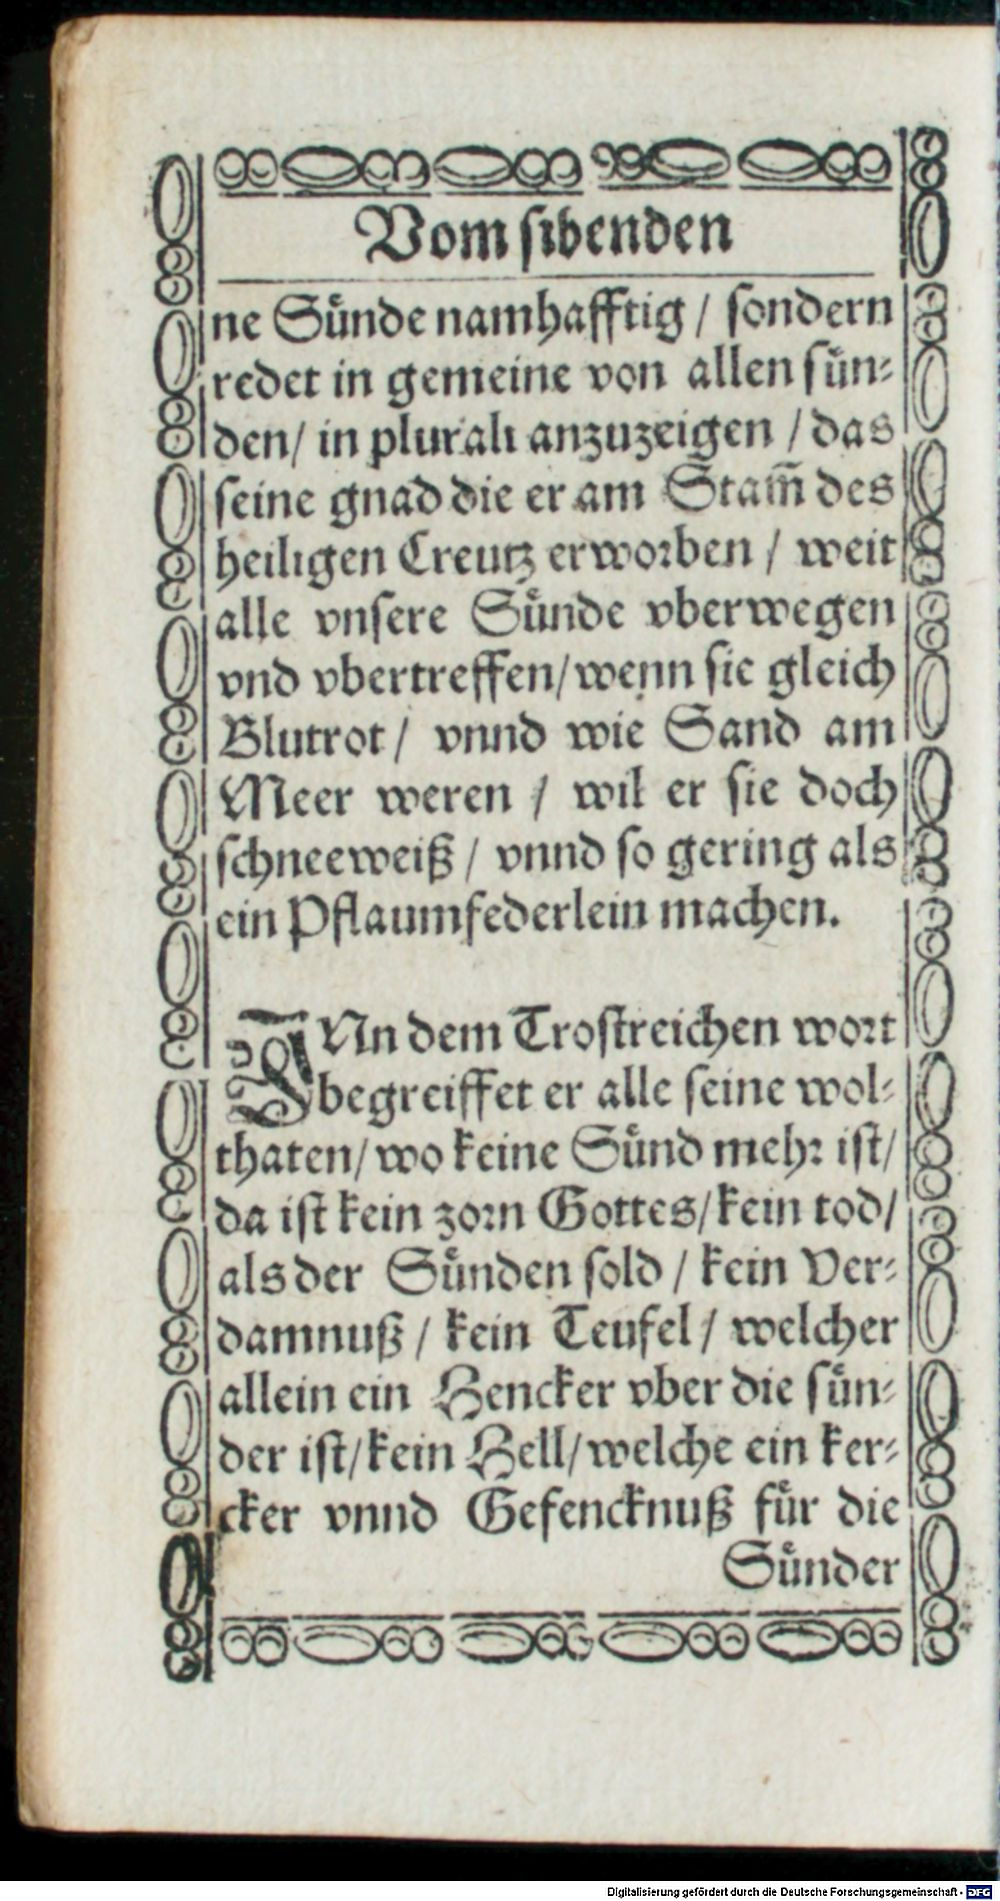 Vom sibenden
ne Suͤnde namhafftig / sondern
redet in gemeine von allen suͤn⸗
den/ in plurali anzuzeigen / das
seine gnad die er am Stam̃ des
heiligen Creutz erworben / weit
alle vnsere Suͤnde vberwegen
vnd vbertreffen/ wenn sie gleich
Blutrot / vnnd wie Sand am
Meer weren / wil er sie doch
schneeweiß / vnnd so gering als
ein Pflaumfederlein machen.
JNn dem Trostreichen wort
begreiffet er alle seine wol⸗
thaten/ wo keine Suͤnd mehr ist/
da ist kein zorn Gottes/ kein tod/
als der Suͤnden sold / kein Ver⸗
damnuß / kein Teufel / welcher
allein ein Hencker vber die suͤn⸗
der ist/ kein Hell/ welche ein ker⸗
cker vnnd Gefencknuß fuͤr die
Suͤnder
Digitalisierung gefördert durch die Deutsche Forschungsgemeinschaft - DFG